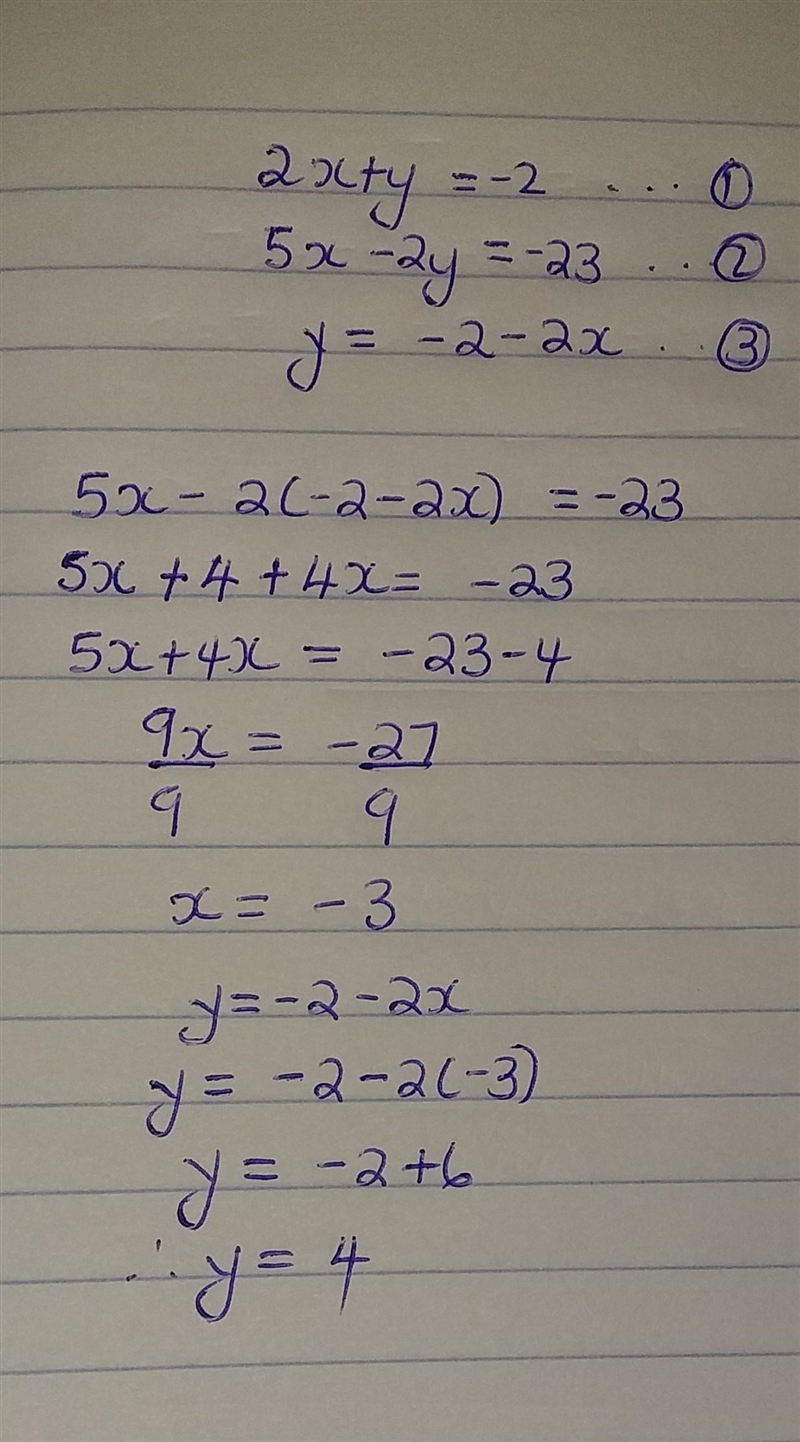 2x+y = -2 ... ①
5x - 2y = -23 .. ②
y = -2 - 2x .. ③
5x - 2(-2-2x) = -23
5x + 4 + 4x = -23
5x + 4x = -23 - 4
9x = -27
9 9
x = -3
y = -2 - 2x
y = -2 - 2(-3)
y = -2 + 6
∴ y = 4